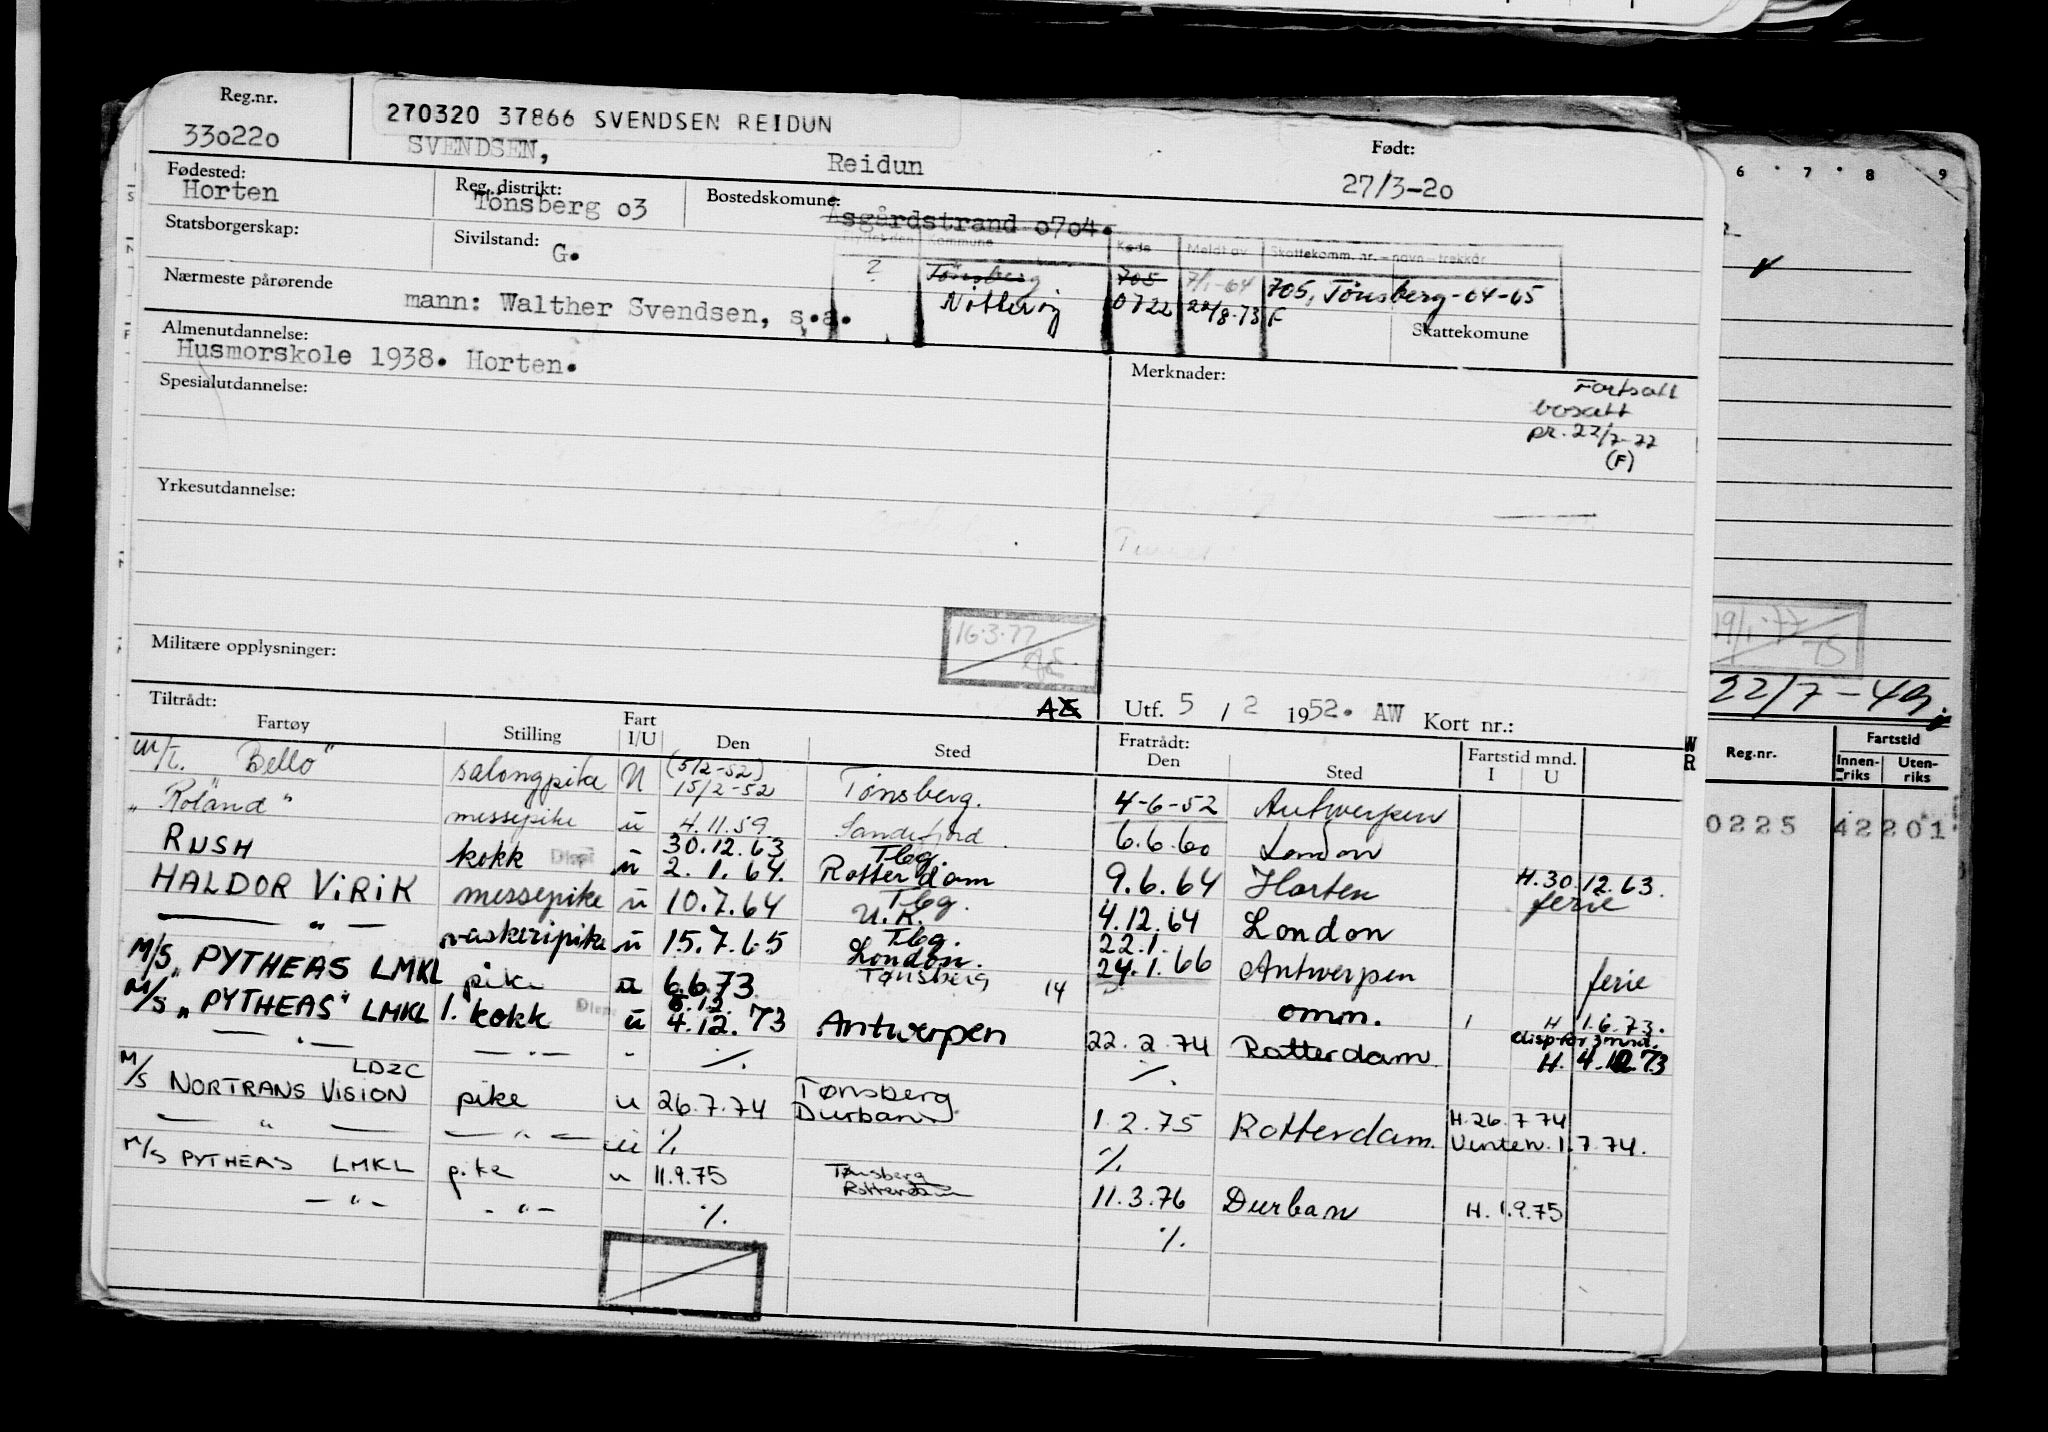 Reg.nr.
330220
270320 37866 SVENDSEN REIDUN
SVENDSEN, Reidun
Født:
27/3-20
Fødested:
Horten
Reg. distrikt:
Tönsberg 03
Bostedskomune:
Åsgårdstrand 0704.
Statsborgerskap:
Sivilstand:
G.
Kommune Kode Meldt av Skattekomm. nr. - navn - trekkår
? Tønsberg 705 7/1-64 705, Tönsberg-64-65
Nøtterøy 0722 22/8-73 F
Skattekomune
Nærmeste pårørende
mann: Walther Svendsen, s.a.
Almenutdannelse:
Husmorskole 1938. Horten.
Merknader:
Fortsatt
bosatt
pr. 22/7-77
(F)
Spesialutdannelse:
Yrkesutdannelse:
Militære opplysninger:
16.3.77
Tiltrådt:
Utf. 5 / 2 1952. AW Kort nr.:
Fartøy Stilling Fart I/U Den Sted Fratrådt: Den Sted Fartstid mnd. I U
M/T. "Bello" salongpike U (5/2-52) 15/2-52 Tønsberg. 4-6-52 Antwerpen
" Roland " messepike u 4.11.59 Sandefjord 6.6.60 London
RUSH kokk u 30.12.63 2. 1. 64. Tbg. Rotterdam 9.6.64 Horten H.30.12.63.
HALDOR VIRIK messepike u 10.7.64 Tbg. U.K. 4.12.64 London ferie
— " — vaskeripike u 15.7.65 Tbg. London. 22.1. 24.1.66 Antwerpen ferie
M/S PYTHEAS LMKL pike u 6.6.73 Tønsberg 14 omm. H 1.6.73.
M/S "PYTHEAS" LMKL 1. kokk u 8.12. 4.12.73 Antwerpen 22.2.74 Rotterdam disp for 3 mnd. H. 4.12.73
— " — — " — - ./. ./.
M/S NORTRANS VISION LDZC pike u 26.7.74 Tønsberg Durban 1.2.75 Rotterdam. H.26.7.74
— " — — " — u ./. ./. Venten. 1.7.74.
M/S PYTHEAS LMKL pike u 11.9.75 Tønsberg Rotterdam 11.3.76 Durban H. 1.9.75
— " — - " — ./. ./.
6 7 8 9
19/1-77
22/7-49.
W
R
Reg.nr. Fartstid
Innenriks Utenriks
0225 42201